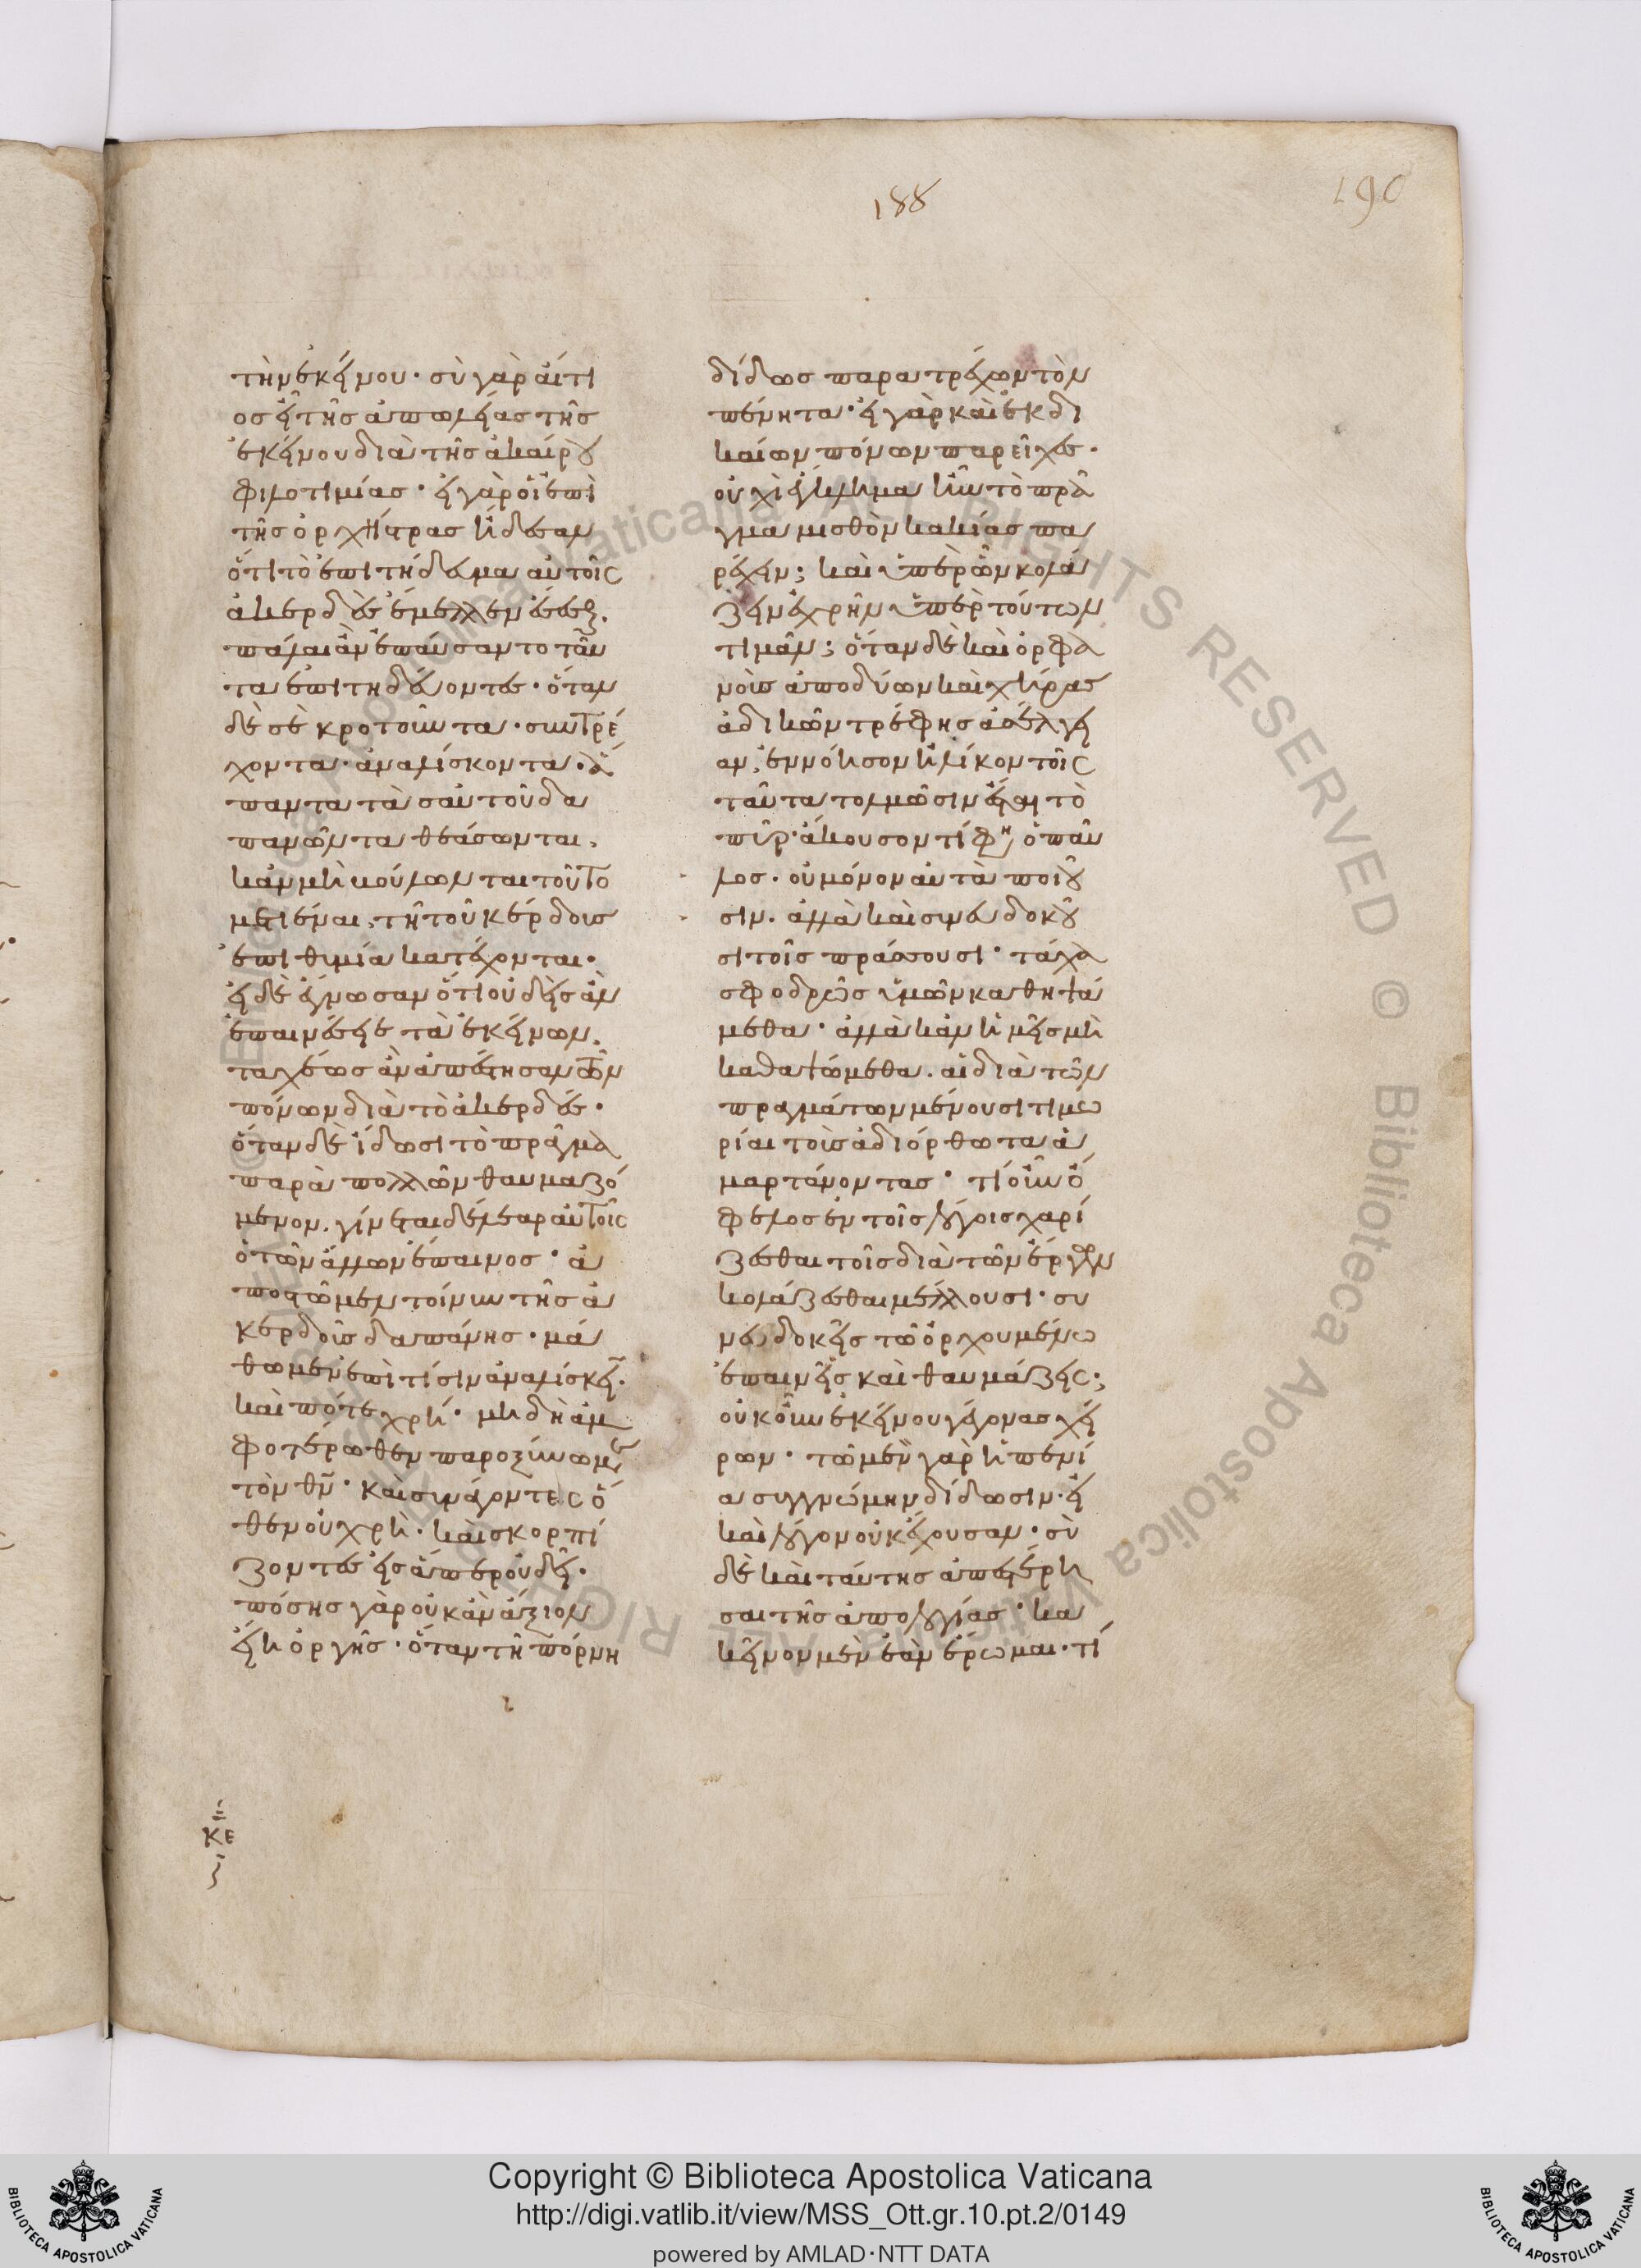 188
190
τὴν ἐκείνου· σὺ γὰρ αἴτι
ος εἶ τῆς ἀπωλείας τῆς
ἐκείνου διὰ τῆς ἀκαίρου
φιλοτιμίας· εἰ γὰρ οἱ ἐπὶ
τῆς ὀρχήστρας ἤδεσαν
ὅτι τὸ ἐπιτήδευμα αὐτοῖς
ἀκερδὲς ἔμελλεν ἔσεσθαι.
πάλαι ἂν ἐπαύσαντο ταῦ
τα ἐπιτηδεύοντες· ὅταν
δέ σε κροτοῦντα· συντρέ
χοντα· ἀναλίσκοντα· ἅ
παντα τὰ σαυτοῦ δα
πανῶντα θεάσωνται,
κἂν μὴ βούλωνται τοῦτο
μετιέναι, τῇ τοῦ κέρδους
ἐπιθυμία κατέχονται·
εἰ δὲ ἔγνωσαν ὅτι οὐδεὶς ἂν
ἐπαινέσειε τὰ ἐκείνων,
ταχέως ἂν ἀπέστησαν τῶν
πόνων διὰ τὸ ἀκερδές·
ὅταν δὲ ἴδωσι τὸ πρᾶγμα
παρὰ πολλῶν θαυμαζό
μενον. γίνεται δέλεαρ αὐτοῖς
ὁ τῶν ἄλλων ἔπαινος· ἀ
ποστῶμεν τοίνυν τῆς ἀ
κερδοῦς δαπάνης· μά
θωμεν ἐπὶ τίσιν ἀναλίσκειν·
καὶ πότε χρή· μὴ δὴ ἀμ
φοτέρωθεν παροξύνωμεν
τὸν θν· καὶ συνάγοντες ὅ
θεν οὐ χρή· καὶ σκορπί
ζοντες εἰς ἅπερ οὐ δεῖ·
πόσης γὰρ οὐκ ἂν ἄξιον
εἴη ὀργῆς· ὅταν τῇ πόρνη
δίδως παρατρέχων τὸν
πένητα· εἰ γὰρ καὶ ἐκ δι
καίων πόνων παρεῖχες·
οὐχὶ ἔγκλημα ἦν τὸ πρᾶ
γμα μισθὸν κακίας πα
ρέχειν; καὶ ὑπὲρ ὧν κολά
ζειν ἐχρῆν ὑπὲρ τούτων
τιμᾶν; ὅταν δὲ καὶ ὀρφα
νοὺς ἀποδύων καὶ χήρας
ἀδικῶν τρέφης ἀσέλγει
αν, ἐννόησον ἡλίκον τοῖς
ταῦτα τολμῶσιν ἔσται τὸ
πῦρ· ἄκουσον τί φη ὁ παῦ
λος· οὐ μόνον αὐτὰ ποιοῦ
σιν. ἀλλὰ καὶ συνευδοκοῦ
σι τοῖς πράσσουσι· τάχα
σφοδρῶς ὑμῶν καθηψά
μεθα· ἀλλὰ κἂν ἡμεῖς μὴ
καθαψώμεθα. αἱ διὰ τῶν
πραγμάτων μένουσι τιμω
ρίαι τοὺς ἀδιόρθωτα ἁ
μαρτάνοντας· τί οὖν ὄ
φελος ἐν τοῖς λόγοις χαρί
ζεσθαι τοῖς διὰ τῶν ἔργων
κολάζεσθαι μέλλουσι· συ
νευδοκεῖς τῶ ὀρχουμένω
ἐπαινεῖς καὶ θαυμάζεις;
οὐκοῦν ἐκείνου γέγονας χεί
ρων· τῶ μὲν γὰρ ἡ πενί
α συγγνώμην δίδωσιν· εἰ
καὶ λόγον οὐκ ἔχουσαν· σὺ
δὲ καὶ ταύτης ἀπεστέρη
σαι τῆς ἀπολογίας· κα
κεῖνον μὲν ἐὰν ἔρωμαι· τί
κε
Copyright © Biblioteca Apostolica Vaticana
http://digi.vatlib.it/view/MSS_Ott.gr.10.pt.2/0149
powered by AMLAD·NTT DATA